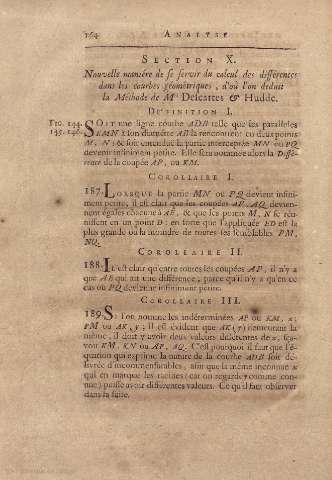 164 ANALYSE
SECTION X.
Nouvelle maniére de se servir du calcul des différences
dans les courbes géometriques, d'où l'on déduit
la Méthode de Mrs Descartes & Hudde.
DEFINITION I.
FIG. 144. SOIT une ligne courbe ADB telle que les paralleles
145. 146. KMN à son diamétre AB la rencontrent en deux points
M, N; & soit entenduë la partie interceptée MN ou PQ
devenir infiniment petite. Elle sera nommée alors la Diffé-
rence de la coupée AP, ou KM.
COROLLAIRE I.
187. LORSQUE la partie MN ou PQ devient infini-
ment petite, il est clair que les coupées AP, AQ devien-
nent égales chacune à AE, & que les points M, N se réü-
nissent en un point D; en sorte que l'appliquée ED est la
plus grande ou la moindre de toutes ses semblables PM,
NQ.
COROLLAIRE II.
188. IL est clair qu'entre toutes les coupées AP, il n'y a
que AE qui ait une différence; parce qu'il n'y a qu'en ce
cas où PQ devienne infiniment petite.
COROLLAIRE III.
189. SI l'on nomme les indéterminées AP ou KM, x;
PM ou AK, y; il est évident que AK (y) demeurant la
même, il doit y avoir deux valeurs différentes de x, sça-
voir KM, KN ou AP, AQ. C'est pourquoi il faut que l'é-
quation qui exprime la nature de la courbe ADB soit dé-
livrée d'incommensurables, afin que la même inconnue x
qui en marque les racines (car on regarde y comme con-
nue) puisse avoir différentes valeurs. Ce qu'il faut observer
dans la suite.